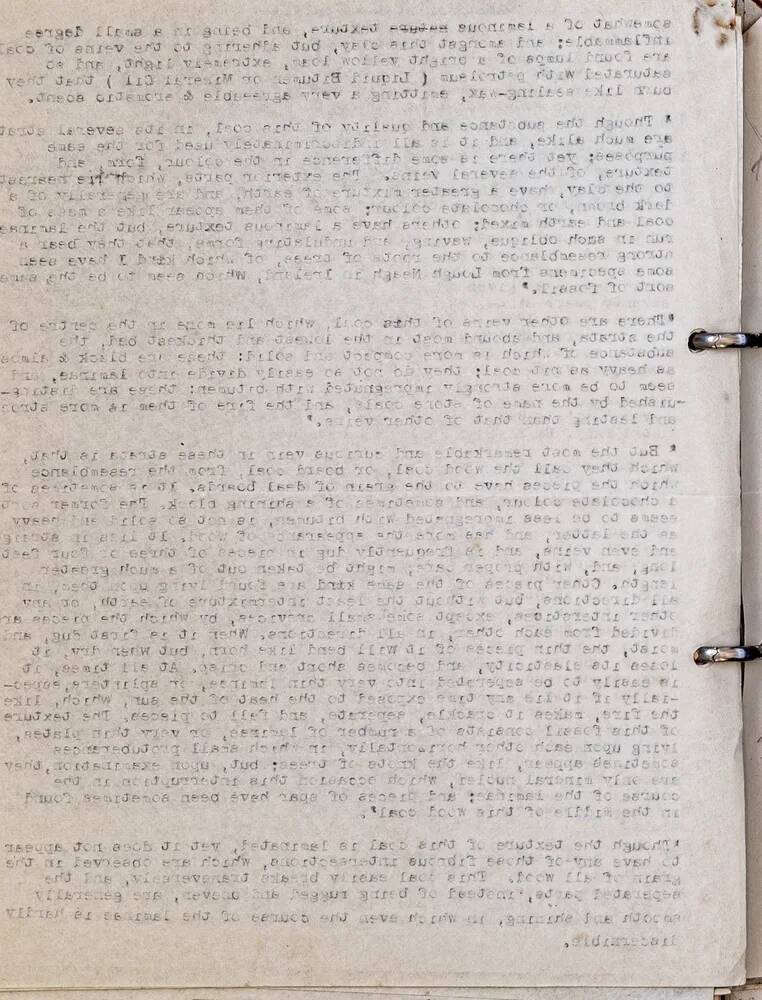 somewhat of a laminous nature texture, and being in a small degree
inflammable; and amongst this clay, but adhering to the veins of coal
are found lumps of a bright yellow loam, extremely light, and so
saturated with petroleum ( Liquid Bitumen or Mineral Oil ) that they
burn like sealing-wax, emitting a very agreeable & aromatic scent.
" Though the substance and quality of this coal, in its several strat
are much alike, and it is all indiscriminately used for the same
purposes; yet there is some difference in the colour, form, and
texture, of the several veins. The exterior parts, which lie nearest
to the clay, have a greater mixture of earth, and are generally of a
dark brown, or chocolate colour; some of them appear like a mass of
coal and earth mixed; others have a laminous texture, but the laminae
run in such oblique, waving, and undulating forms, that they bear a
strong resemblance to the roots of trees, of which kind I have seen
some specimens from Lough Neagh in Ireland, which seem to be the same
sort of fossil."
"There are other veins of this coal, which lie more in the centre of
the strata, and abound most in the lowest and thickest bed, the
substance of which is more compact and solid: these are black & almos
as heavy as pit coal; they do not so easily divide into laminae, and
seem to be more strongly impregnated with bitumen: these are disting-
-uished by the name of stone coals, and the fire of them is more stron
and lasting than that of other veins."
" But the most remarkable and curious vein in these strata is that,
which they call the wood coal, or board coal, from the resemblance
which the pieces have to the grain of deal boards. It is sometimes of
a chocolate colour, and sometimes of a shining black. The former sort
seems to be less impregnated with bitumen, is not so solid and heavy
as the latter, and has more the appearance of wood. It lies in straig
and even veins, and is frequently dug in pieces of three or four feet
long, and, with proper care, might be taken out of a much greater
length. Other pieces of the same kind are found lying upon them, in
all directions, but without the least intermixture of earth, or any
other interstices, except some small crevices, by which the pieces are
divided from each other, in all directions. When it is first dug, and
moist, the thin pieces of it will bend like horn, but when dry, it
loses its elasticity, and becomes short and crisp. At all times, it
is easily to be separated into very thin laminae, or splinters, espec-
-ially if it lie any time exposed to the heat of the sun, which, like
the fire, makes it crackle, separate, and fall to pieces. The texture
of this fossil consists of a number of laminae, or very thin plates,
lying upon each other horizontally, in which small protuberances
sometimes appear, like the knots of trees; but, upon examination, they
are only mineral nuclei, which occasion this interruption in the
course of the laminae; and pieces of spar have been sometimes found
in the middle of this wood coal".
"Though the texture of this coal is laminated, yet it does not appear
to have any of those fibrous intersections, which are observed in the
grain of all wood. This coal easily breaks transversely, and the
separated parts, instead of being rugged and uneven, are generally
smooth and shining, in which even the course of the laminae is hardly
discernible.